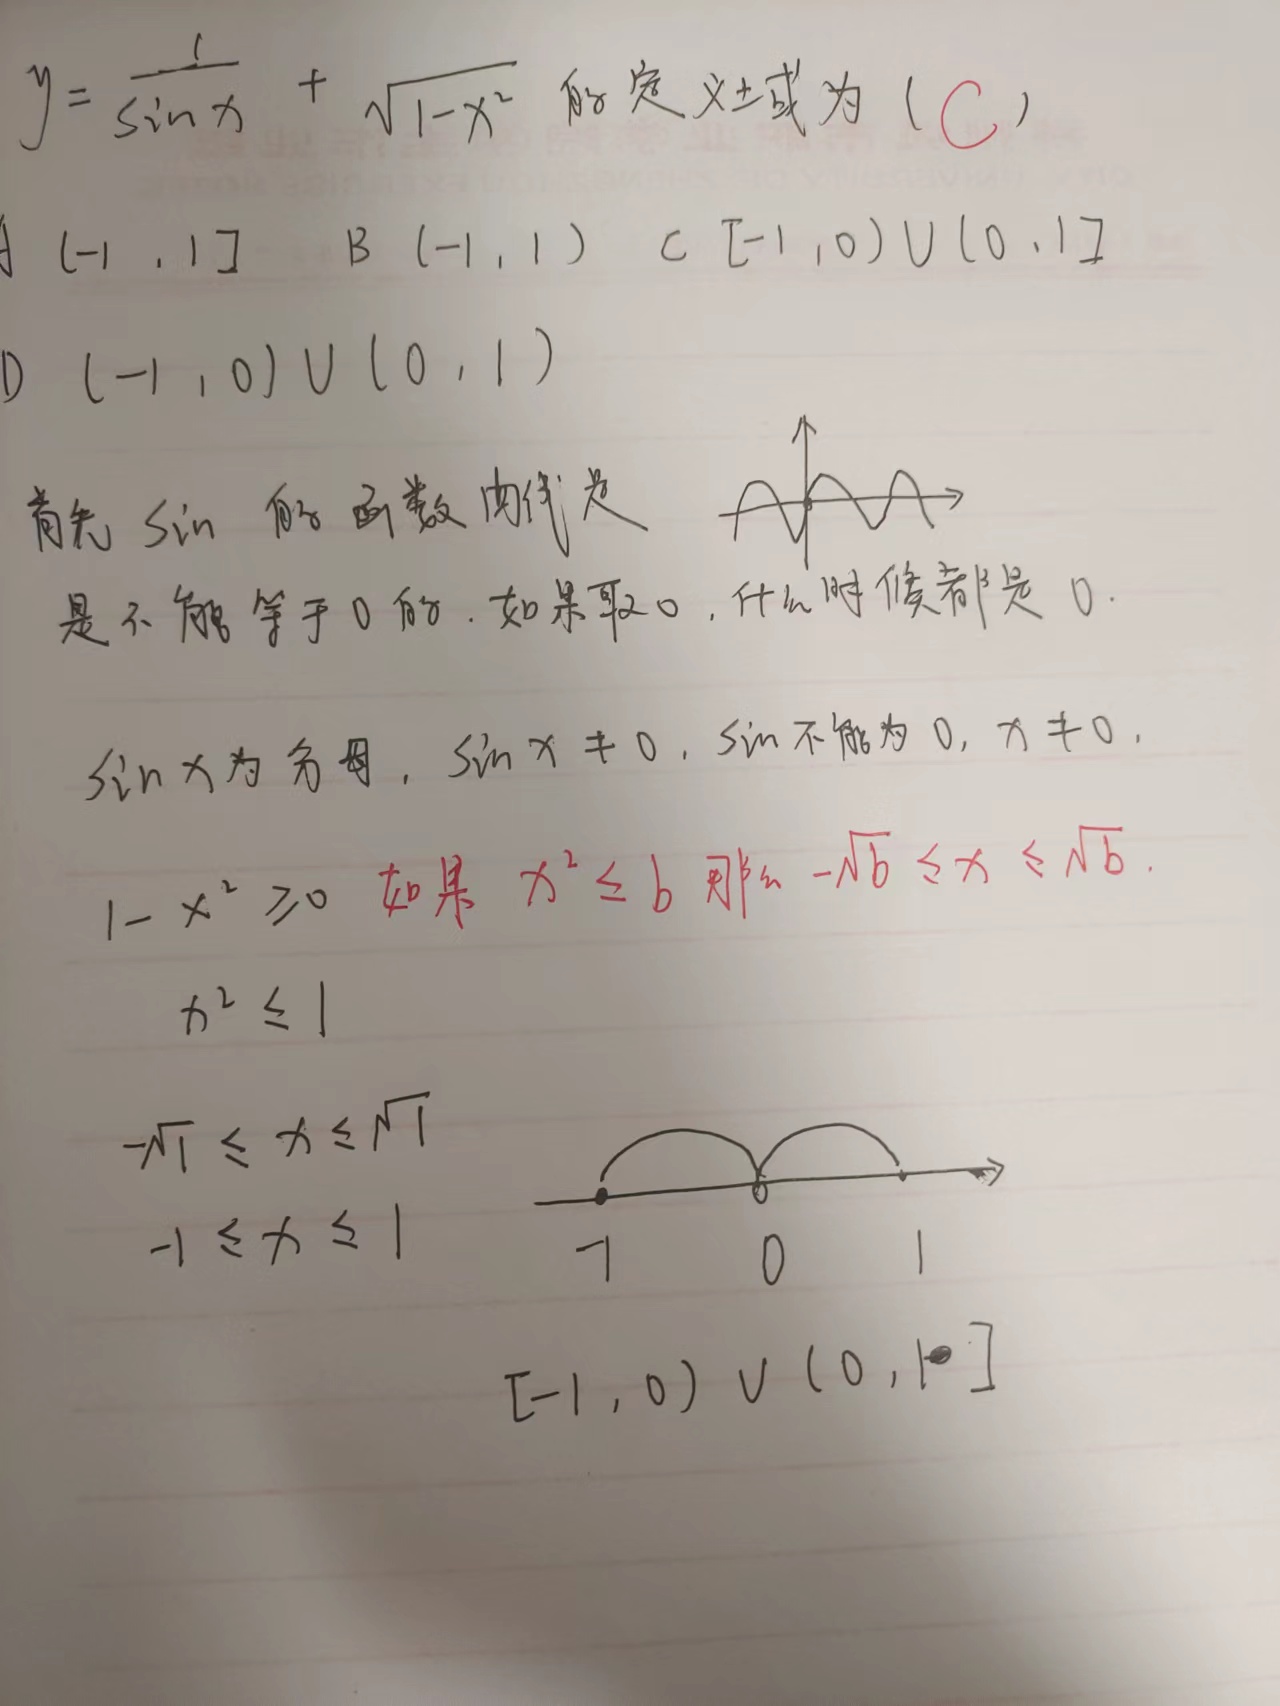 y = 1/sin x + √(1-x²) 的定义域为 ( C )
A (-1, 1] B (-1, 1) C [-1, 0) ∪ (0, 1]
D (-1, 0) ∪ (0, 1)
首先 sin 的函数曲线是
是不能等于0的. 如果取0, 什么时候都是0.
sin x 为分母, sin x ≠ 0, sin不能为0, x ≠ 0,
1 - x² ≥ 0 如果 x² ≤ b 那么 -√b ≤ x ≤ √b.
x² ≤ 1
-√1 ≤ x ≤ √1
-1 ≤ x ≤ 1
-1 0 1
[-1, 0) ∪ (0, 1]